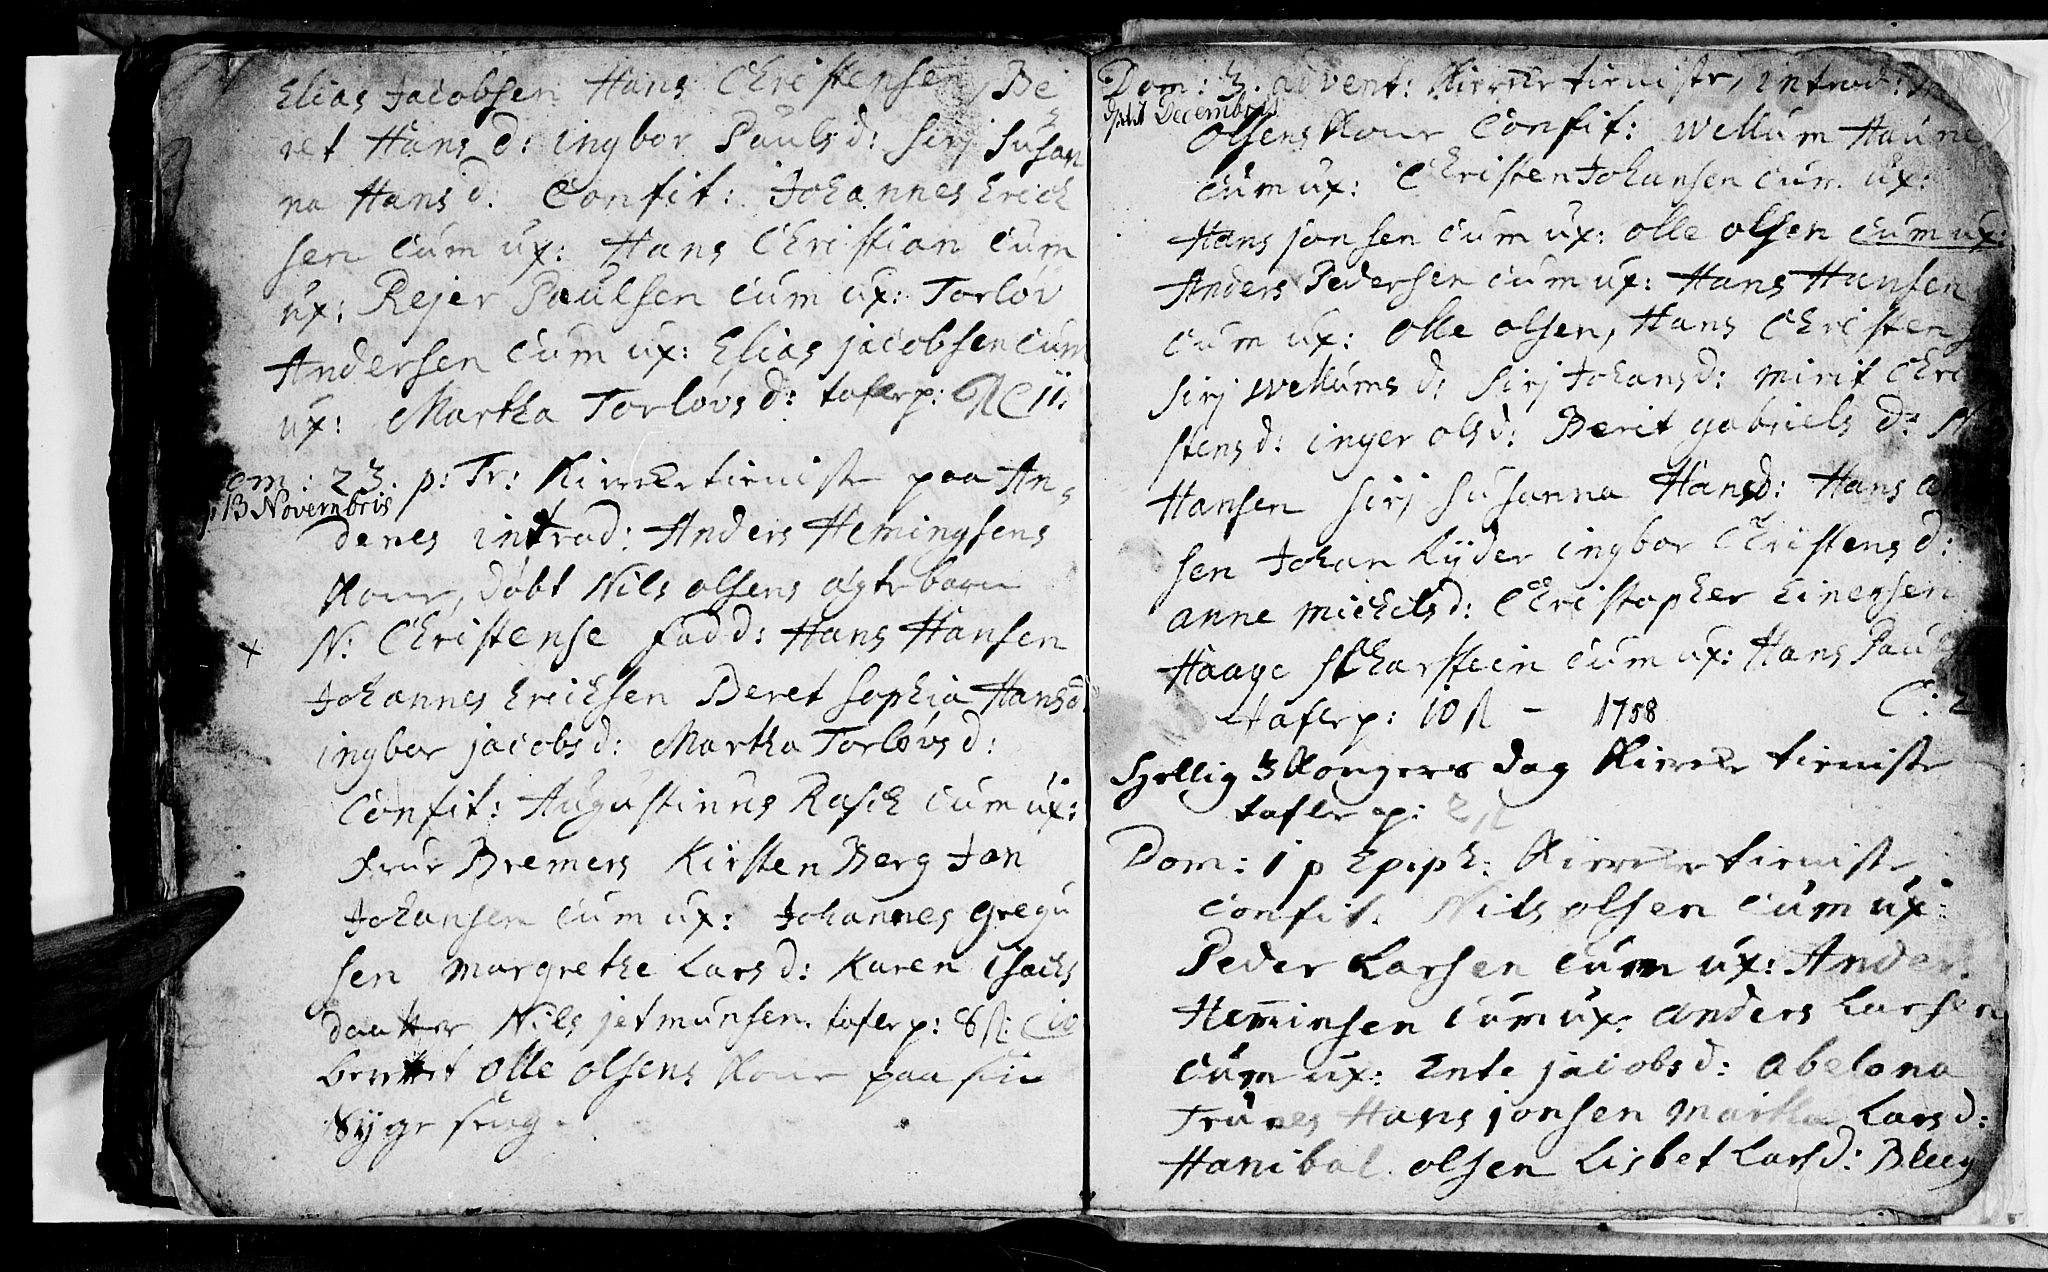 Elias Jacobsen Hans Christensen, Be
ret Hans d: ingbor Pauls d: Sirj Susan
na Hans d. Confit: Johannes Erich
sen cum ux: Hans Christian cum
ux: Rejer Paulsen cum ux: Torløv
Andersen cum ux: Elias jacobsen cum
ux: Martha Torløvs d: taflep:
om: 23. p: Tr: Kirke tieniste paa An,
13 Novembris
denes introd: Anders Hemingsens
Kone, døbt Nils olsens ægte barn
N: Christense Fadd: Hans Hansen
Johannes Erichsen Beret Sophia Hansd
ingbor jacobs d: Martha Torløvs d:
Confit: Augustinus Rasch cum ux:
Frue Bremers Kirsten Berg Jon
Johansen cum ux: Johannes Gregu
sen Margrethe Lars d: Karen Isachs
daatter Nils jetmunsen. taflep: 8
berettet olle olsens Kone paa sin
Syge seng.
Dom: 3. advent: Kirke tieniste, introd:
Decembris
olsens Kone Confit: Wellum Haune
cum ux: Christen Johansen cum ux:
Hans jonsen cum ux: olle olsen cum ux:
Anders Pedersen cum ux: Hans Hansen
cum ux: olle olsen, Hans Christens
Sirj Wellums d: Sirj Johans d: Mirit Chri
stens d: inger ols d: Berit gabriels d: N
Hansen Sirj Susanna Hansd: Hans
sen Johan Lyder ingbor Christens d:
anne Michels d: Christopher Einersen
Haage Scharstein cum ux: Hans Pauls
taflep: 10 – 1758 C: 2
Hellig 3 Kongers dag Kirke tieniste
taflep: 2
Dom: 1 p Epiph: Kirke tieniste,
Confit. Nils olsen cum ux:
Peder Larsen cum ux: Anders
Heminsen cum ux: anders Larsen
cum ux: Ente jacobs d: abelona
Trunes Hans jonsen Martha Lars d:
Hanibal olsen Lisbet Larsd: